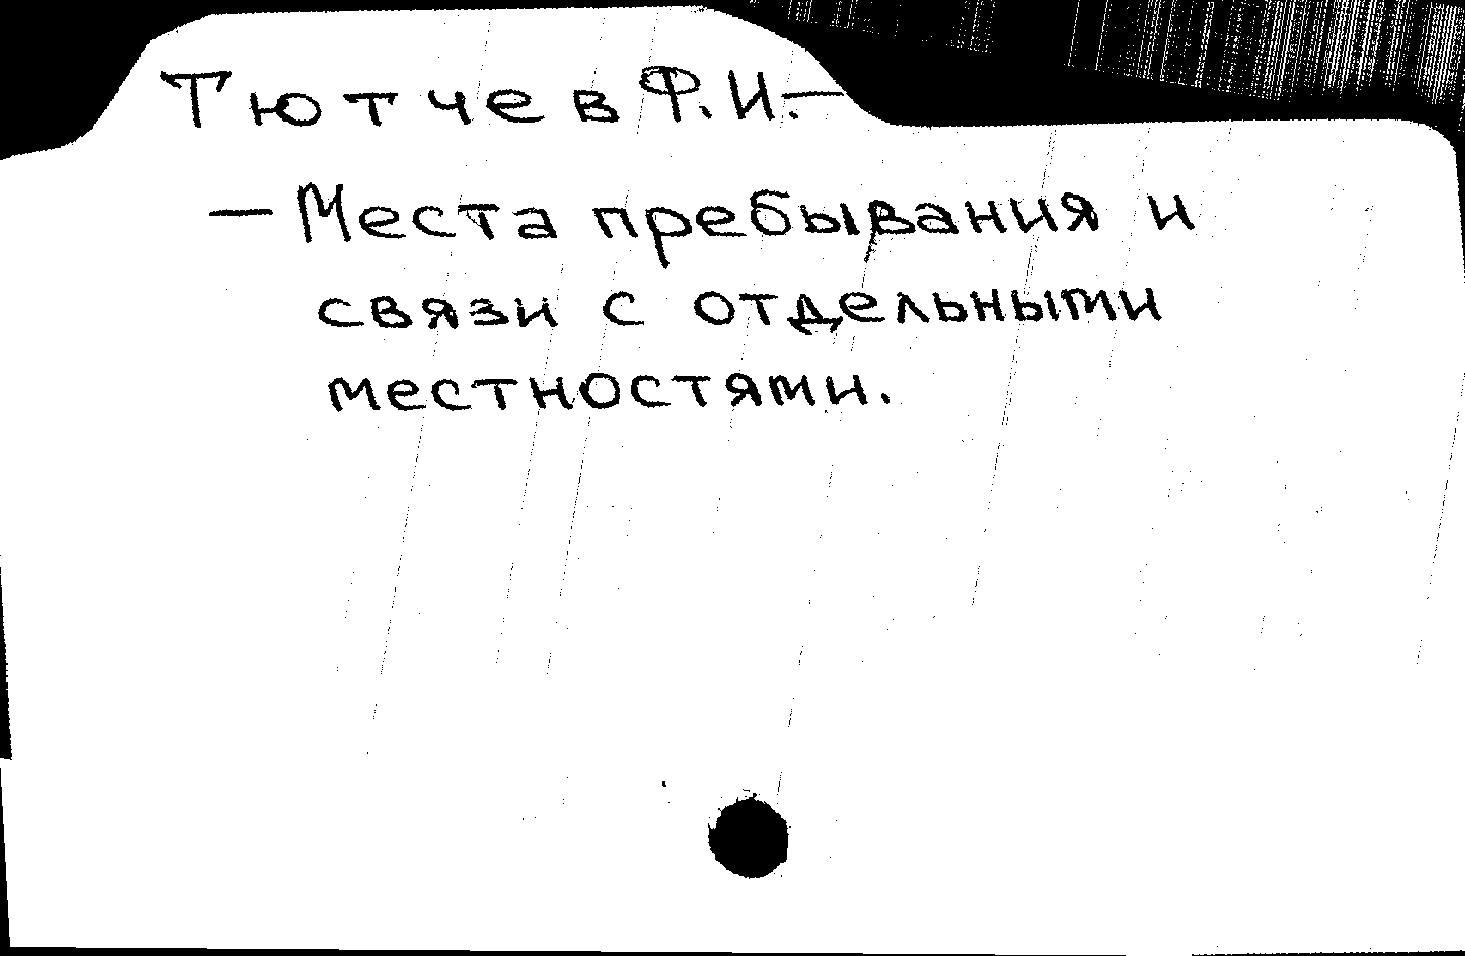 Тютчев Ф.И.—
— Места пребывания и
связи с отдельными
местностями.